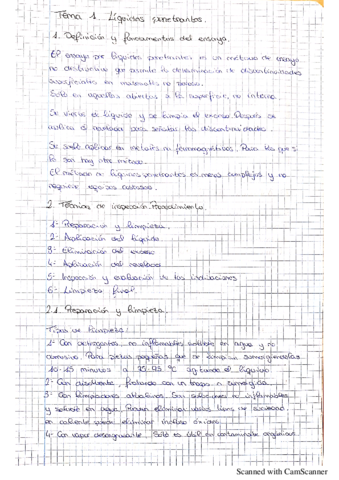 Tema 1. Líquidos penetrantes.
1. Definición y fundamentos del ensayo.
El ensayo por líquidos penetrantes es un método de ensayo
no destructivo que permite la determinación de discontinuidades
en materiales no porosos.
Solo en aquellas abiertas a la superficie, no internas.
Se vierte el líquido y se limpia el exceso. Después se
aplica el revelador para señalar las discontinuidades.
Se suele aplicar en metales no ferromagnéticos. Para los que sí
lo son hay otro método.
El método de líquidos penetrantes es menos complejo y no
requiere equipos costosos.
2. Técnicas de inspección. Procedimiento.
1- Preparación y limpieza.
2- Aplicación del líquido
3- Eliminación del exceso
4- Aplicación del revelador
5- Inspección y evaluación de las indicaciones
6- Limpieza final.
2.1. Preparación y limpieza.
Tipos de limpieza:
1- Con detergentes, no inflamables soluble en agua y no
corrosivo. Para piezas pequeñas que se limpian sumergiéndolas
10-15 minutos a 75-95 ºC agitando el líquido
2- Con disolvente, frotando con un trapo o sumergida.
3- Con limpiadores alcalinos. Son soluciones no inflamables
y solubles en agua. Pueden eliminar varios tipos de suciedad,
en caliente pueden eliminar incluso óxidos.
4- Con vapor desengrasante. Solo es útil en contaminantes orgánicos.
Scanned with CamScanner